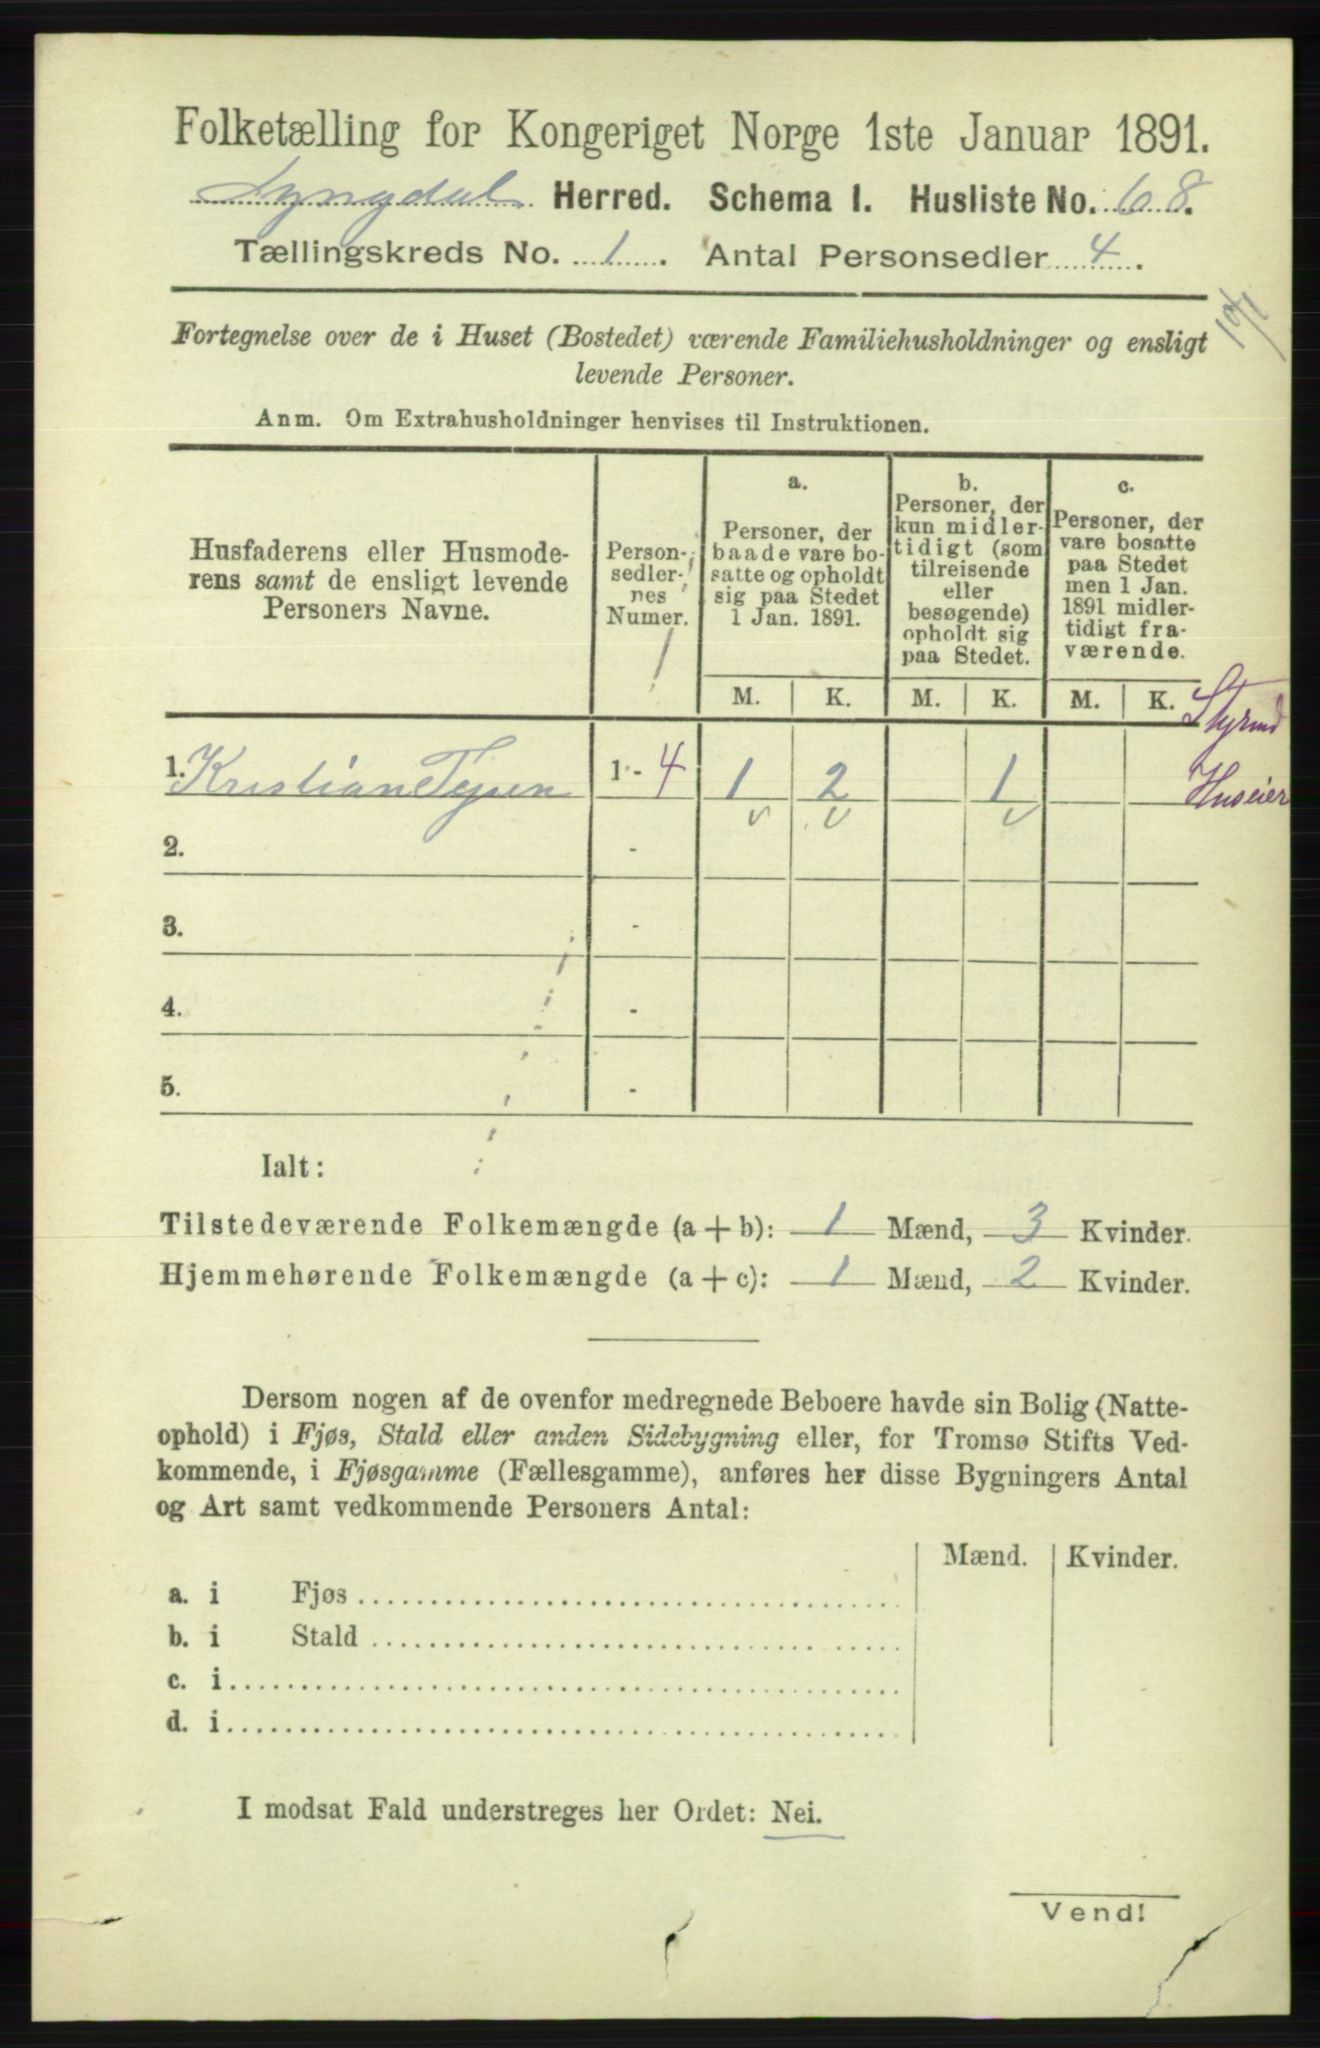 Folketælling for Kongeriget Norge 1ste Januar 1891.
Lyngdal Herred. Schema I. Husliste No. 68.
Tællingskreds No. 1. Antal Personsedler 4.
Fortegnelse over de i Huset (Bostedet) værende Familiehusholdninger og ensligt
levende Personer.
Anm. Om Extrahusholdninger henvises til Instruktionen.
Husfaderens eller Husmode-
rens samt de ensligt levende
Personers Navne.
Person-
sedler-
nes
Numer.
a.
Personer, der
baade vare bo-
satte og opholdt
sig paa Stedet
1 Jan. 1891.
b.
Personer, der
kun midler-
tidigt (som
tilreisende
eller
besøgende)
opholdt sig
paa Stedet.
c.
Personer, der
vare bosatte
paa Stedet
men 1 Jan.
1891 midler-
tidigt fra-
værende.
M. K. M. K. M. K.
Styrmd
1. Kristian 1-4 1 2 1 Huseier
2. -
3. -
4. -
5. -
Ialt:
Tilstedeværende Folkemængde (a + b): 1 Mænd, 3 Kvinder.
Hjemmehørende Folkemængde (a + c): 1 Mænd, 2 Kvinder.
Dersom nogen af de ovenfor medregnede Beboere havde sin Bolig (Natte-
ophold) i Fjøs, Stald eller anden Sidebygning eller, for Tromsø Stifts Ved-
kommende, i Fjøsgamme (Fællesgamme), anføres her disse Bygningers Antal
og Art samt vedkommende Personers Antal:
Mænd. Kvinder.
a. i Fjøs
b. i Stald
c. i
d. i
I modsat Fald understreges her Ordet: Nei.
Vend!